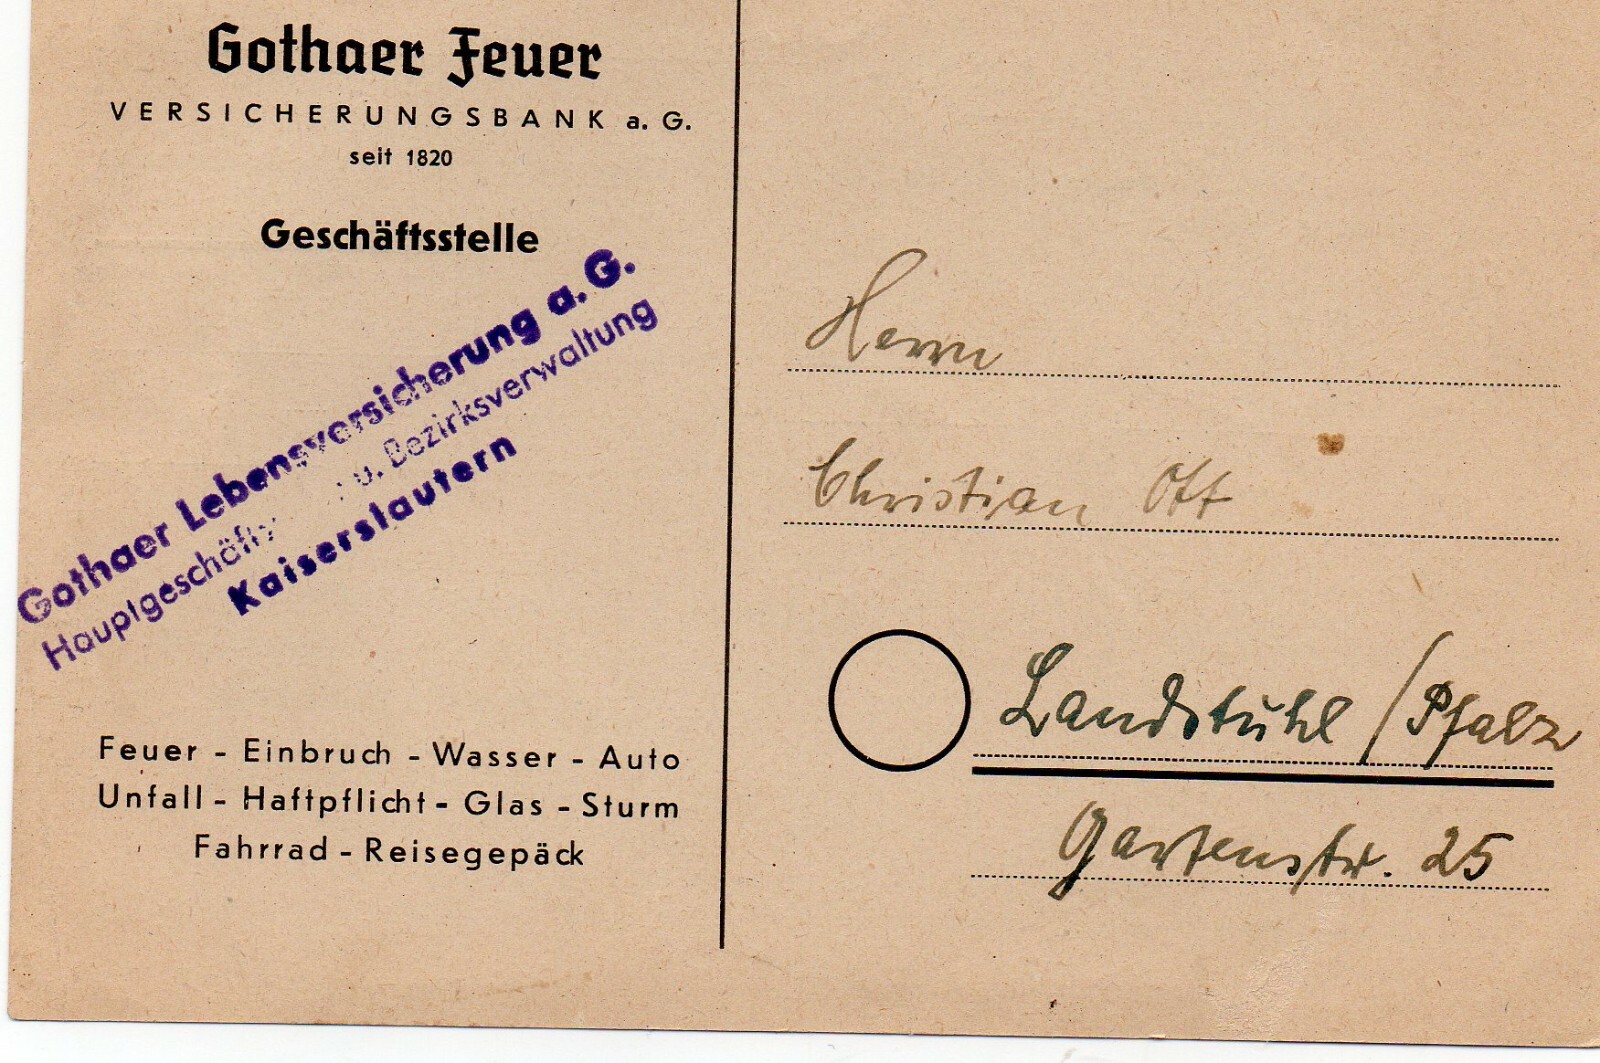 Gothaer Feuer
VERSICHERUNGSBANK a. G.
seit 1820
Geschäftsstelle
Gothaer Lebensversicherung a. G.
Hauptgeschäfts u. Bezirksverwaltung
Kaiserslautern
Feuer - Einbruch - Wasser - Auto
Unfall - Haftpflicht - Glas - Sturm
Fahrrad - Reisegepäck
Herrn
Christian Ott
Landstuhl / Pfalz
Gartenstr. 25